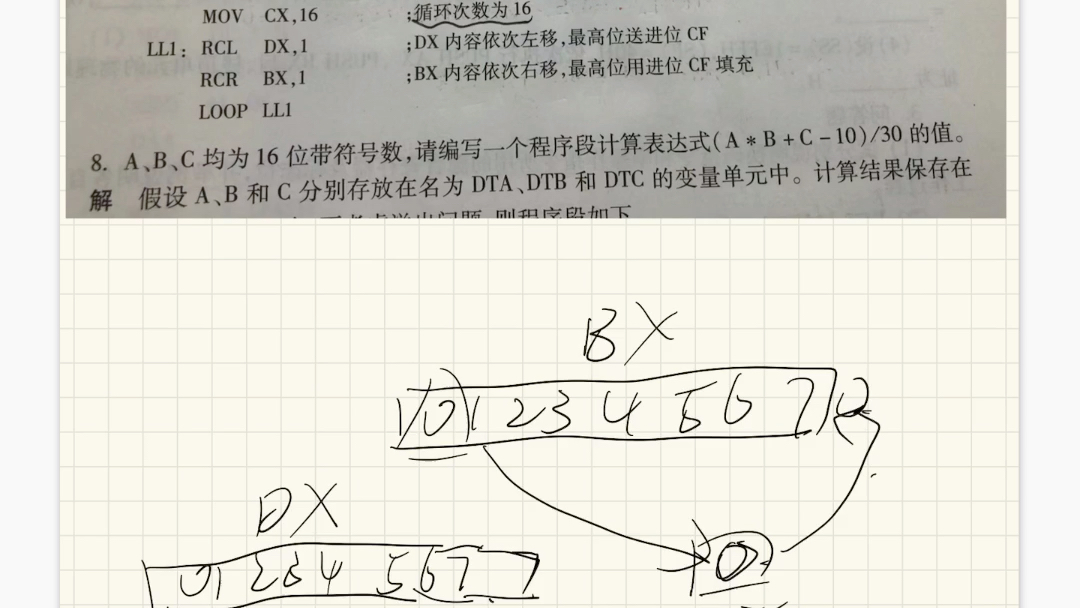 MOV CX,16 ;循环次数为16
LL1: RCL DX,1 ;DX 内容依次左移,最高位送进位 CF
RCR BX,1 ;BX 内容依次右移,最高位用进位 CF 填充
LOOP LL1
8. A、B、C 均为 16 位带符号数,请编写一个程序段计算表达式(A*B+C-10)/30 的值。
解 假设 A、B 和 C 分别存放在名为 DTA、DTB 和 DTC 的变量单元中。计算结果保存在
则程序段如下
BX
0 1 2 3 4 5 6 7
DX
0 1 2 3 4 5 6 7 7